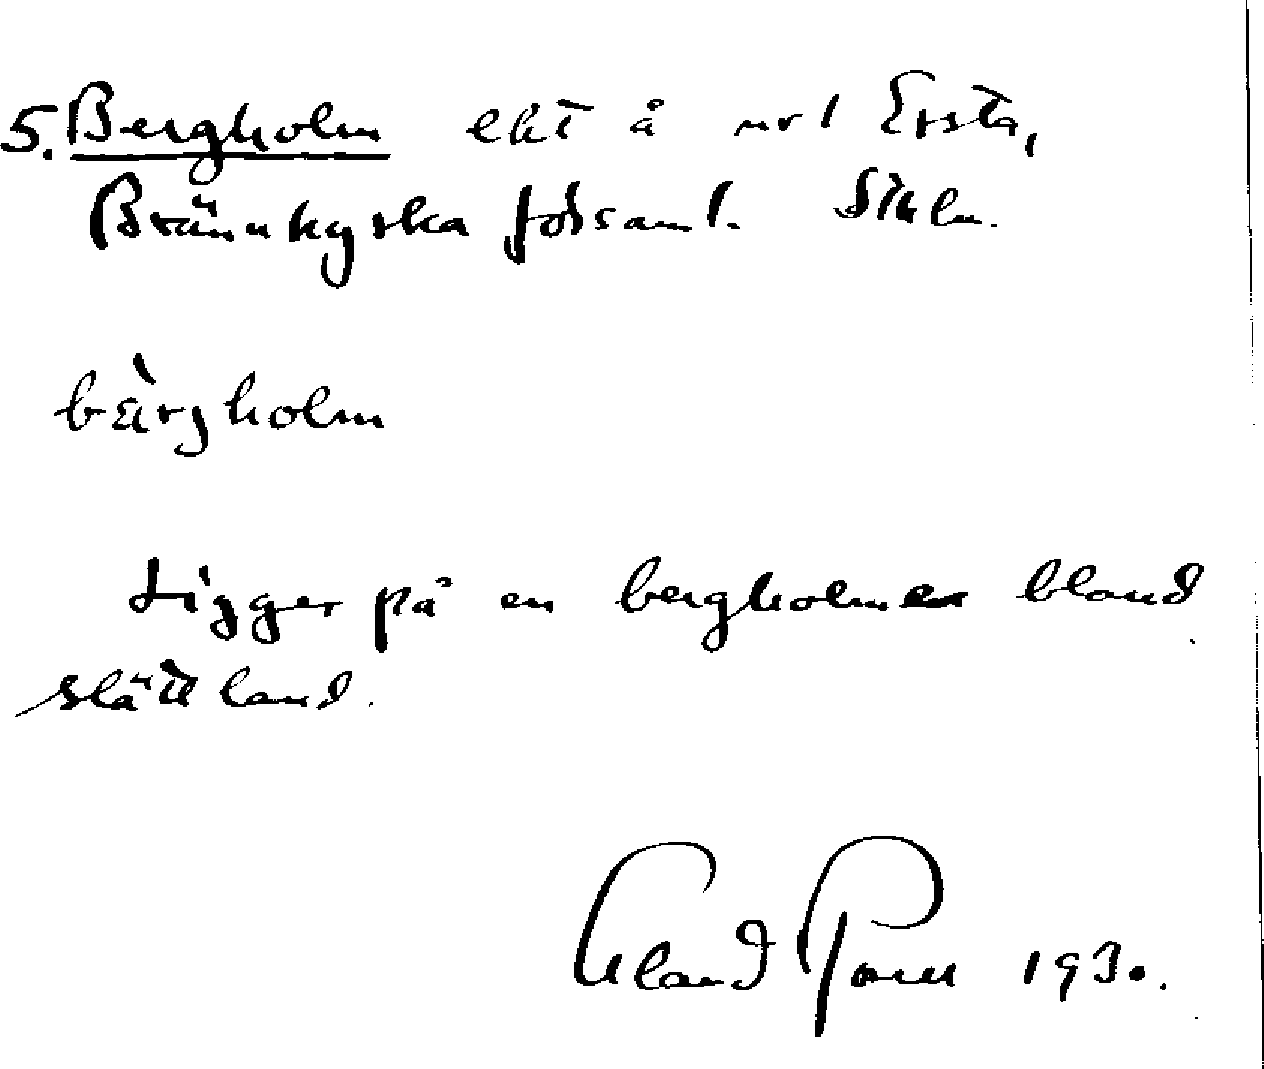 5. Bergholm ekt å nr 1 Ersta,
Brännkyrka församl. Sthlm.
bärgholm
Ligger på en bergholme bland
slättland.
Erland Rosell 1930.